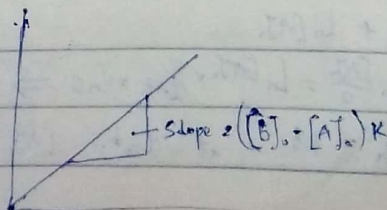 Slope = ([B]₀ - [A]₀) K